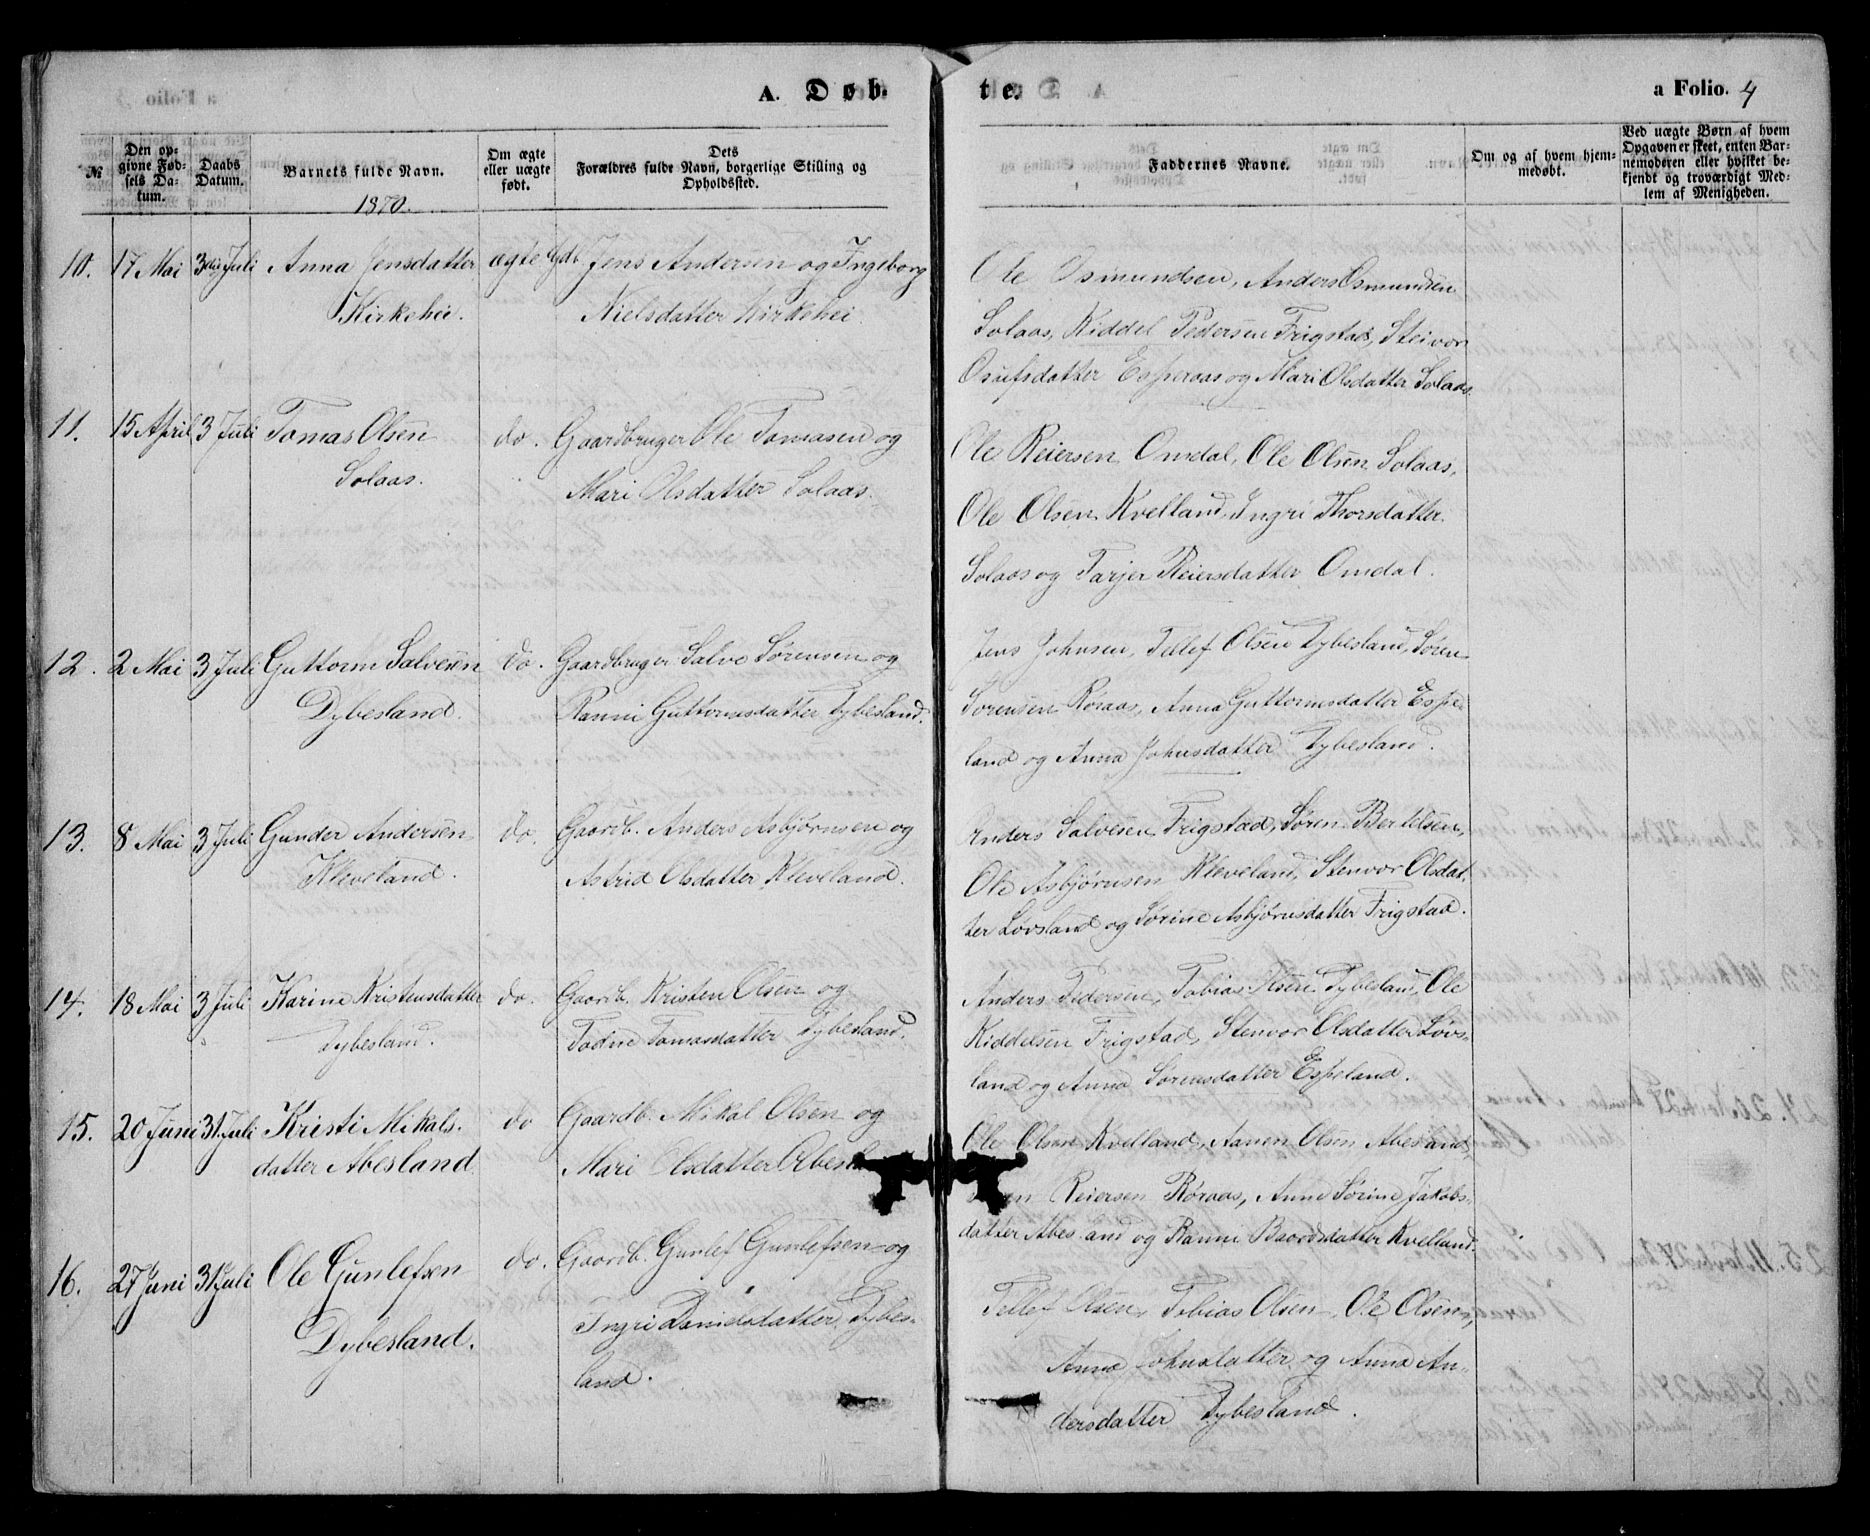 A. Døb- te.
a Folio. 4
№
Den op-
givne Fød-
sels Da-
tum.
Daabs
Datum.
Barnets fulde Navn.
Om ægte
eller uægte
født.
Dets
Forældres fulde Navn, borgerlige Stilling og
Opholdssted.
Faddernes Navne.
Om og af hvem hjem-
medøbt.
Ved uægte Børn af hvem
Opgaven er skeet, enten Bar-
nemoderen eller hvilket be-
kjendt og troværdigt Med-
lem af Menigheden.
1870.
10. 17 Mai 3die Juli Anna Jensdatter ægte Gdb. Jens Andersen og Ingeborg
Kirkehei. Nielsdatter Kirkehei.
Ole Osmundsen, Anders Osmundsen
Solaas, Kiddel Pedersen Frigstad, Steivor
Osufsdatter Esperaas og Mari Olsdatter Solaas.
11. 15 April 3 Juli Tomas Olsen do. Gaardbruger Ole Tomasen og
Solaas. Mari Olsdatter Solaas.
Ole Reiersen Omdal, Ole Olsen Solaas,
Ole Olsen Kvelland, Ingri Thorsdatter
Solaas og Tarjer Reiersdatter Omdal.
12. 2 Mai 3 Juli Guttorm Salvesen do. Gaardbruger Salve Sørensen og
Dybesland. Ranni Guttormsdatter Dybesland.
Jens Johnsen, Tellef Olsen Dybesland, Søren
Sørensen Røraas, Anna Guttormsdatter Espe-
land og Anna Johnsdatter Dybesland.
13. 8 Mai 3 Juli Gunder Andersen do. Gaardb. Anders Asbjørnsen og
Kleveland. Astrid Olsdatter Kleveland.
Anders Salvesen Frigstad, Søren Bertelsen,
Ole Asbjørnsen Kleveland, Stenvor Olsdat-
ter Løvsland og Sørine Asbjørnsdatter Frigstad.
14. 18 Mai 3 Juli Karine Kristensdatter do. Gaardb. Kristen Olsen og
Dybesland. Todne Tomasdatter Dybesland.
Anders Pedersen, Tobias Olsen Dybesland, Ole
Kiddelsen Frigstad, Stenvor Olsdatter Løvs-
land og Anna Sørensdatter Espeland.
15. 20 Juni 31 Juli Kristi Mikals- do Gaardb. Mikal Olsen og
datter Abesland Mari Olsdatter
Ole Olsen Kvelland, Aanen Olsen Abesland,
Reiersen Røraas, Anne Sørine Jakobs-
datter Abesland og Ranni Baardsdatter Kvelland.
16. 27 Juni 31 Juli Ole Gunlefsen do. Gaardb. Gunlef Gunlefsen og
Dybesland. Ingri Danielsdatter Dybes-
land.
Tellef Olsen, Tobias Olsen, Ole Olsen,
Anna Johnsdatter og Anna An-
dersdatter Dybesland.